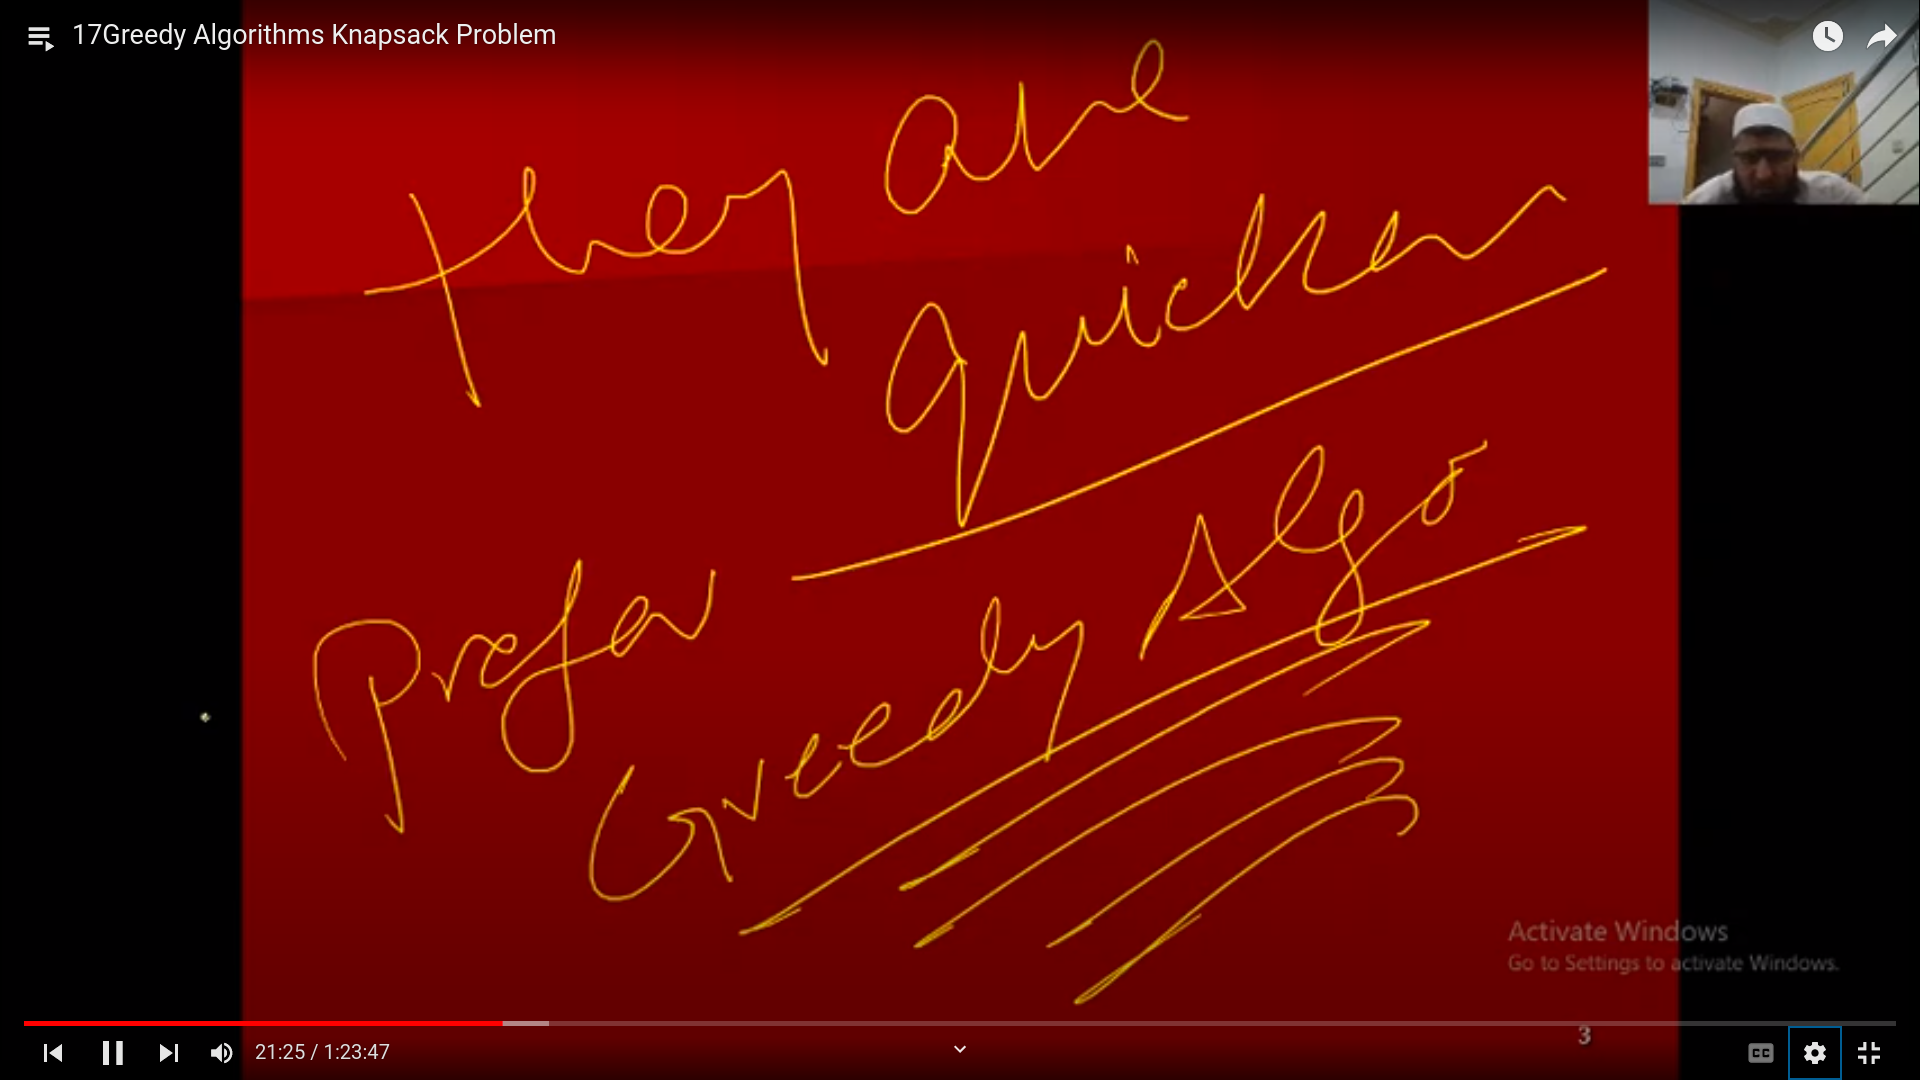 17Greedy Algorithms Knapsack Problem
They are
quicker
Prefer
Greedy Algo
Activate Windows
Go to Settings to activate Windows.
3
21:25 / 1:23:47
CC